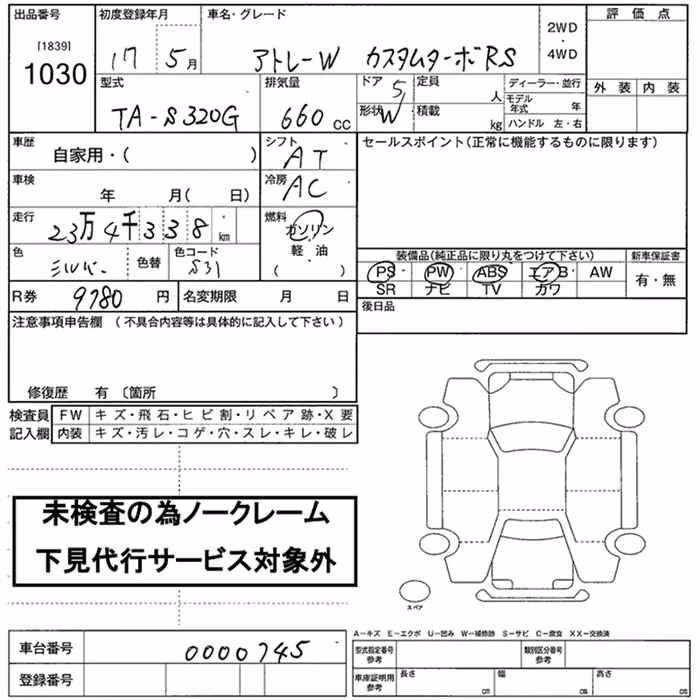 出品番号 初度登録年月 車名・グレード 2WD・4WD 評価点
[1839]
1030 17 5月 アトレーW カスタムターボRS 外装 内装
型式 排気量 ドア 5 定員 人 ディーラー・並行
TA-S320G 660cc 形状 W 積載 kg モデル年式 年
ハンドル 左・右
車歴 自家用・( ) シフト AT セールスポイント(正常に機能するものに限ります)
車検 年 月( 日) 冷房 AC
走行 23万4千338km 燃料 ガソリン
軽・油
( ・ )
色 シルバー 色替 色コード S31 装備品(純正品に限り丸をつけて下さい) 新車保証書
PS PW ABS エアB AW 有・無
R券 9780円 名変期限 月 日 SR ナビ TV カワ
後日品
注意事項申告欄 (不具合内容等は具体的に記入して下さい)
修復歴 有 〔箇所 〕
検査員 FW キズ・飛石・ヒビ割・リペア跡・X要
記入欄 内装 キズ・汚レ・コゲ・穴・スレ・キレ・破レ
未検査の為ノークレーム
下見代行サービス対象外
スペア
A－キズ E－エクボ U－凹み W－補修跡 S－サビ C－腐食 XX－交換済
車台番号 0000745 型式指定番号 参考 類別区分番号 参考
登録番号 車庫証明用 参考 長さ cm 幅 cm 高さ cm